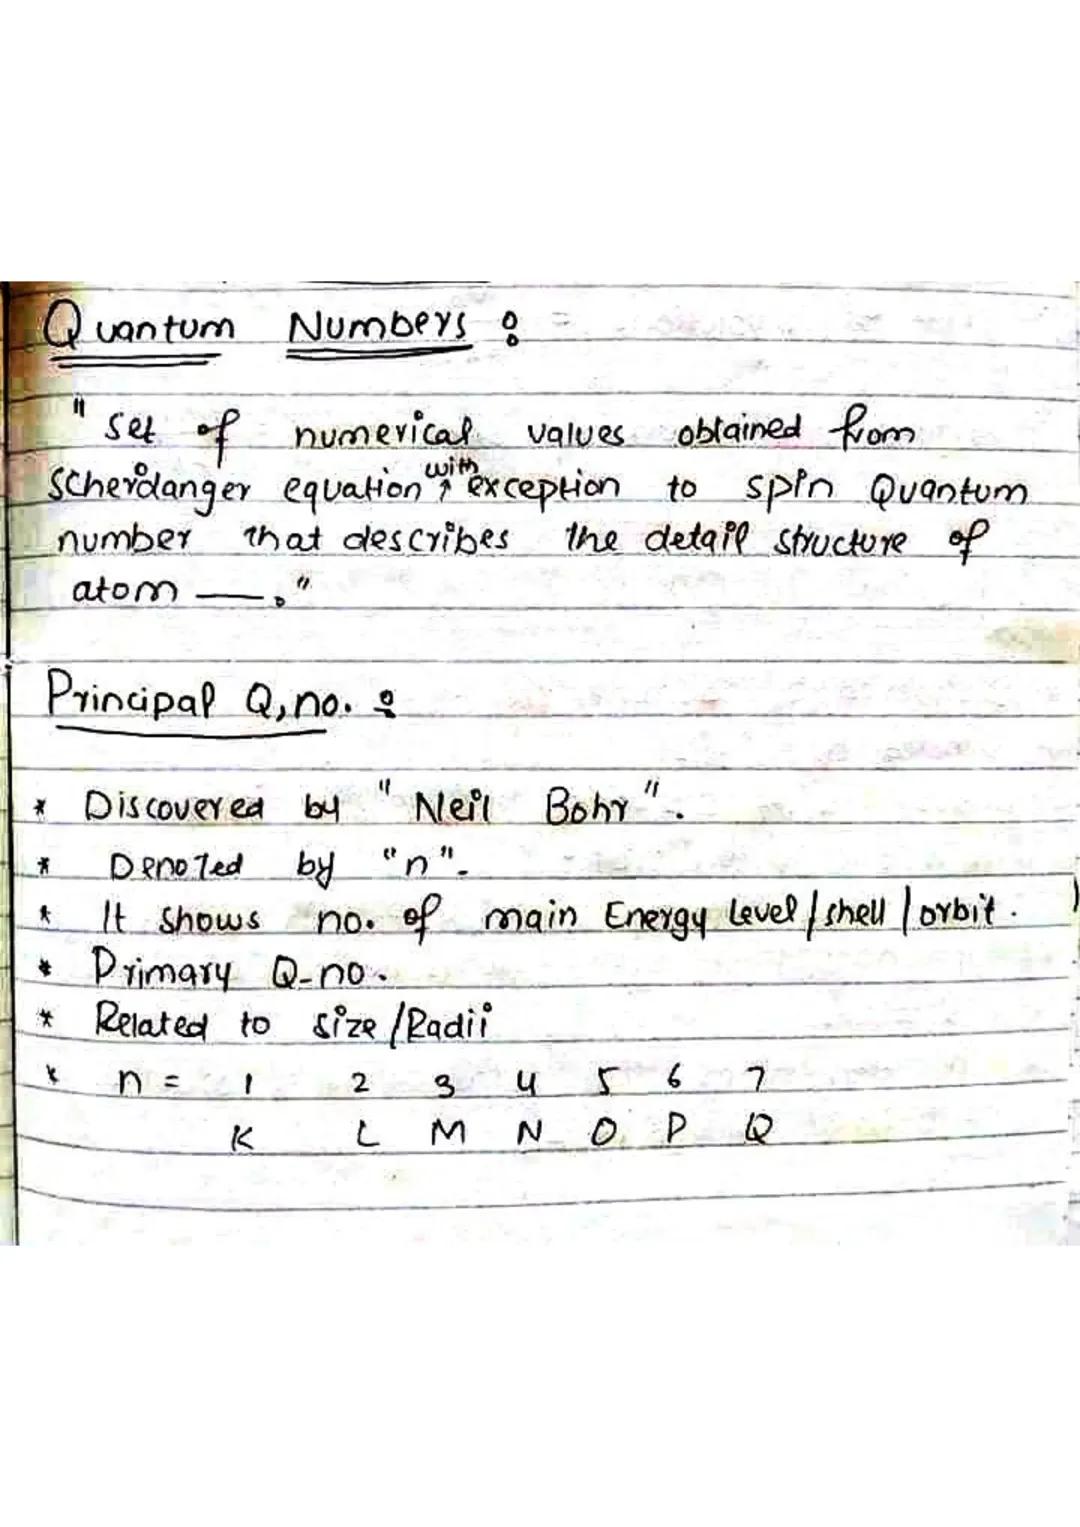 Quantum Numbers :
" Set of numerical values obtained from
Scherdanger equation with exception to spin Quantum
number that describes the detail structure of
atom —. "
Principal Q,no. :
* Discovered by " Neil Bohr ".
* Denoted by "n".
* It shows no. of main Energy Level / shell / orbit.
* Primary Q-no.
* Related to size / Radii
* n = 1 2 3 4 5 6 7
K L M N O P Q